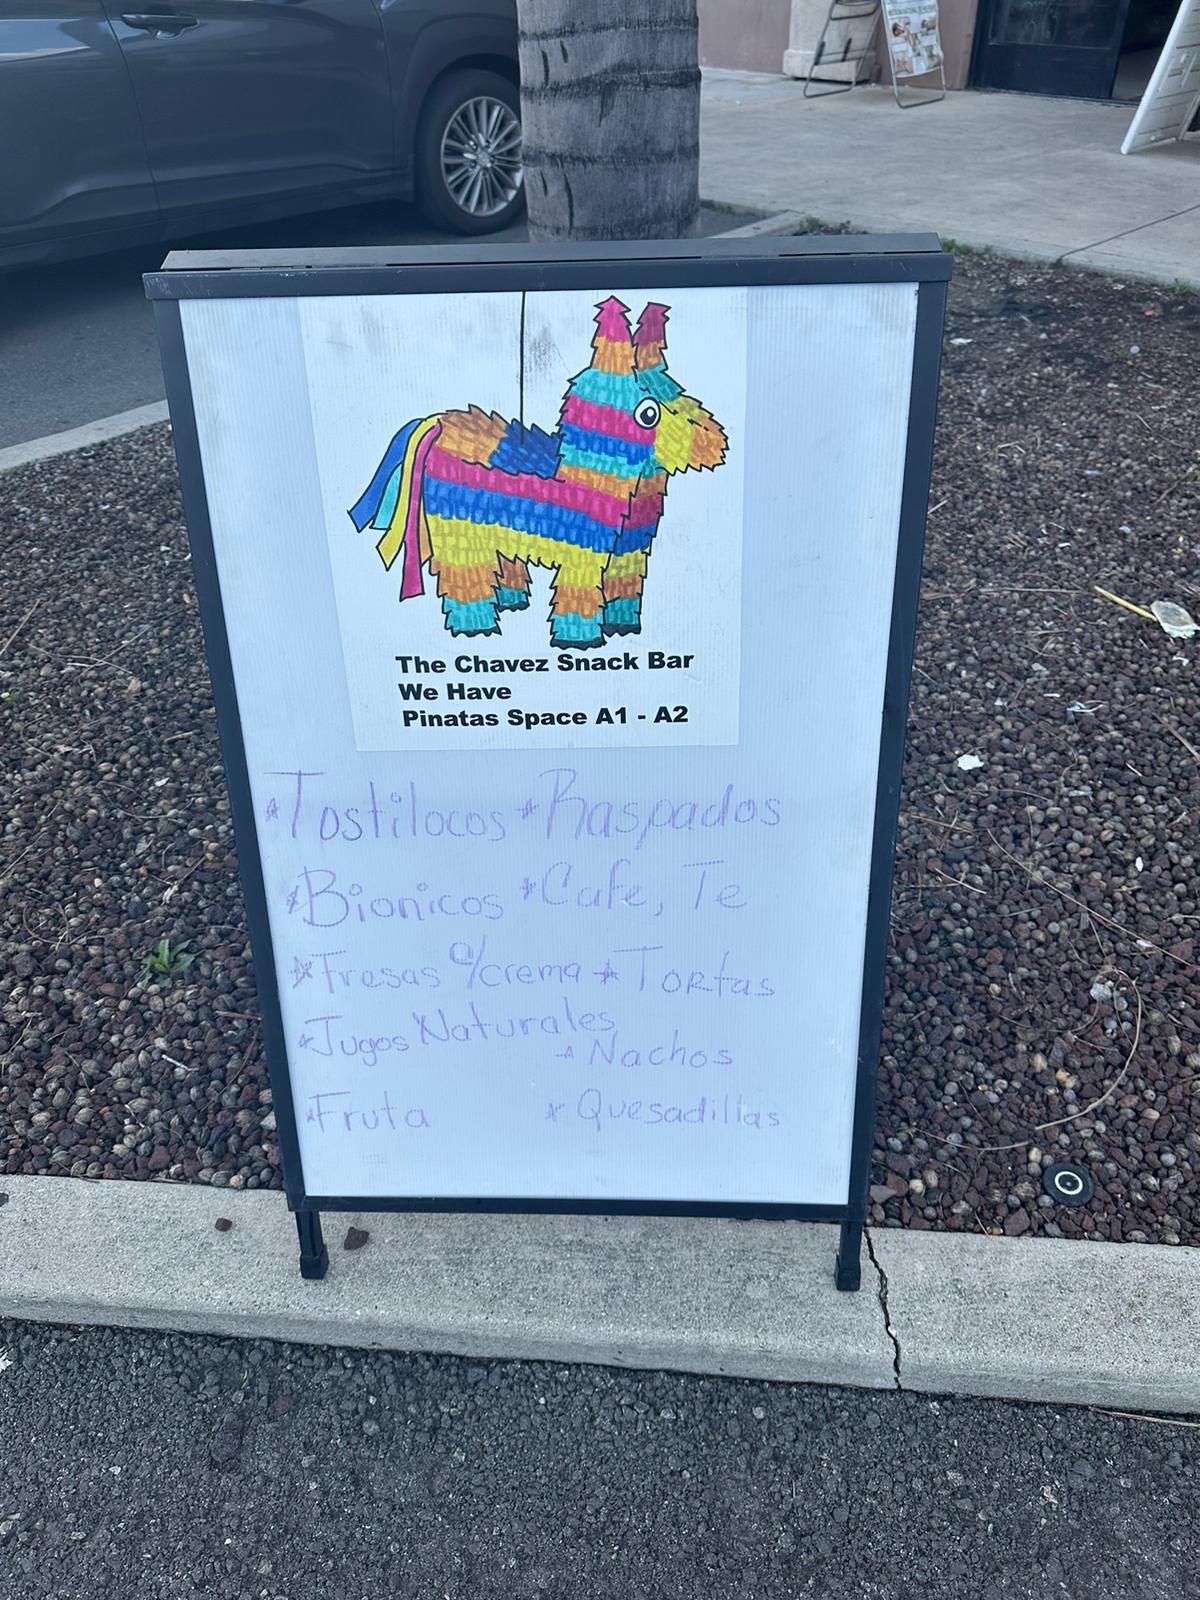 The Chavez Snack Bar
We Have
Pinatas Space A1 - A2
*Tostilocos *Raspados
*Bionicos *Cafe, Te
*Fresas c/crema *Tortas
*Jugos Naturales
*Nachos
*Fruta *Quesadillas